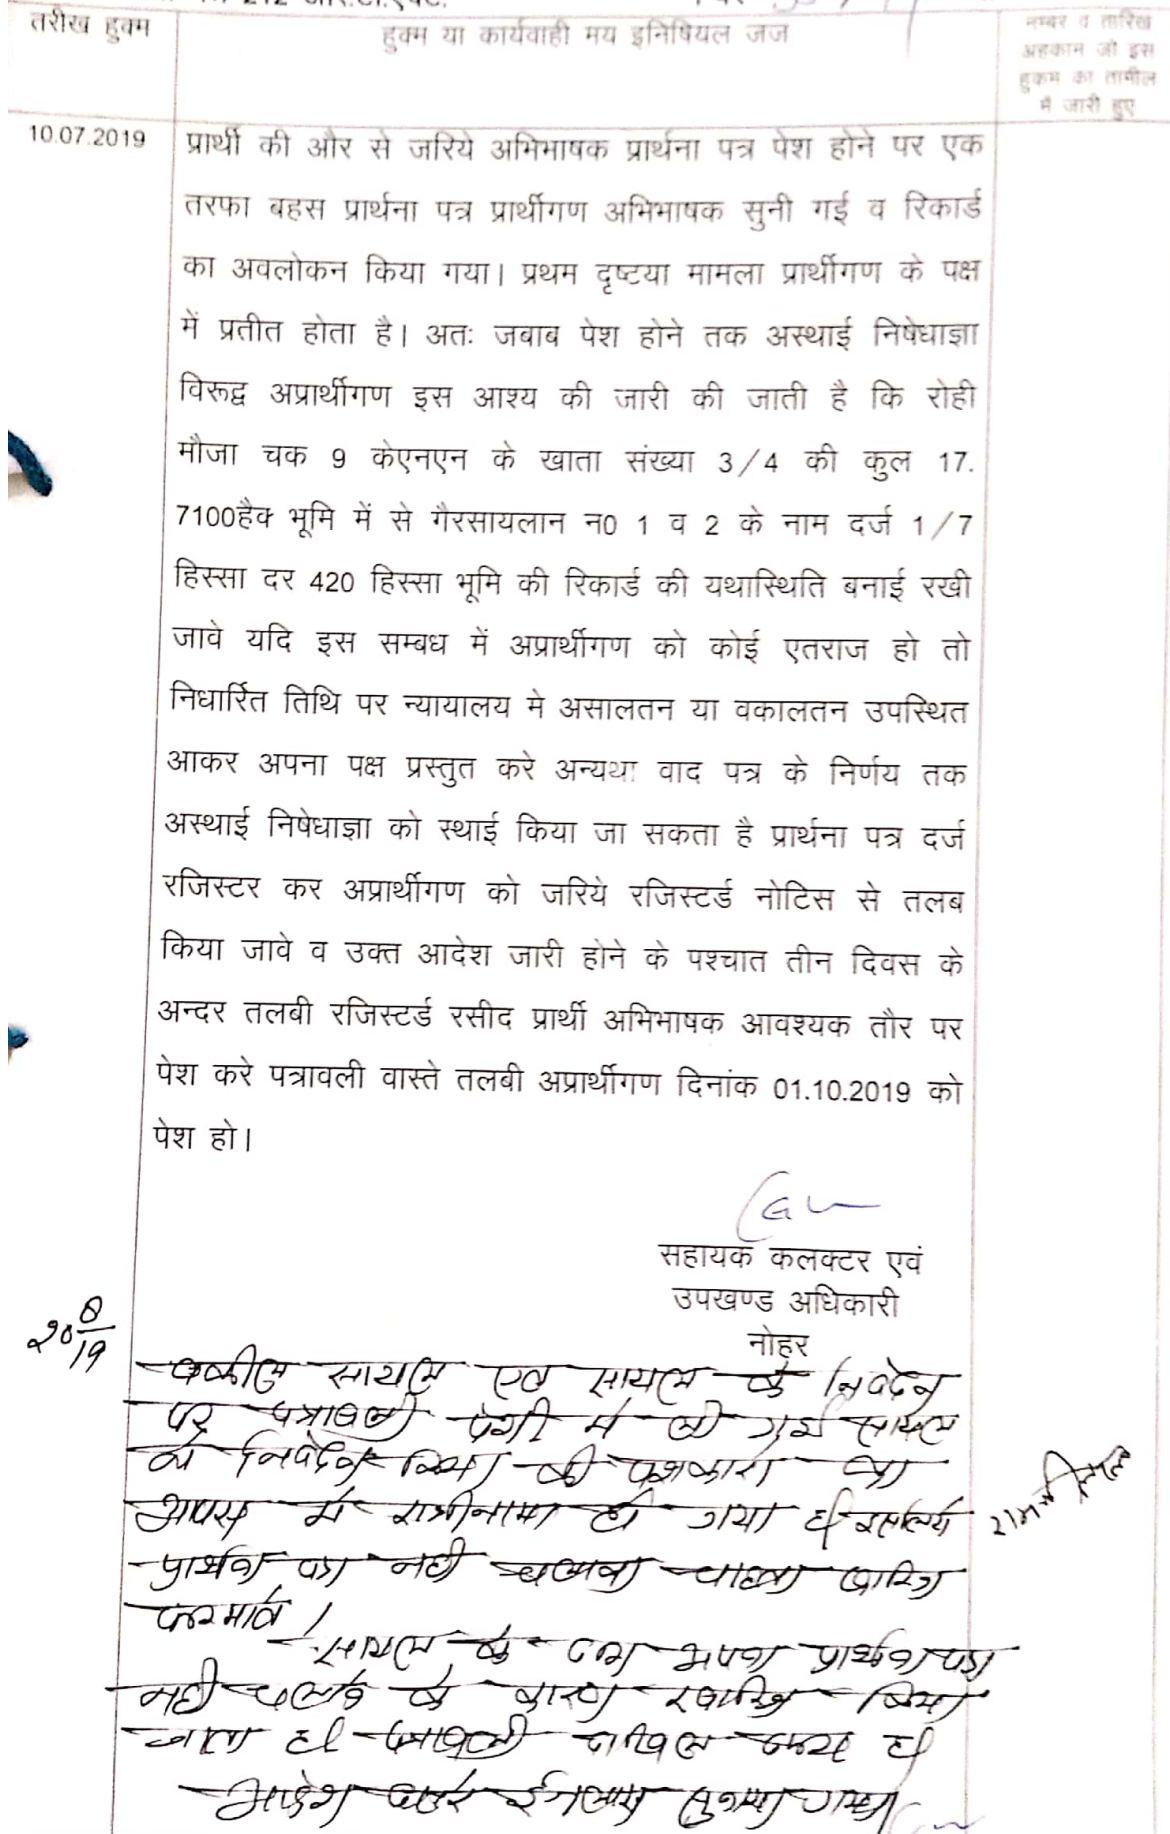 तरीख हुक्म
हुक्म या कार्यवाही मय इनिषियल जज
नम्बर व तारिख
अहकाम जो इस
हुकम का तामील
में जारी हुए
10.07.2019
प्रार्थी की और से जरिये अभिभाषक प्रार्थना पत्र पेश होने पर एक
तरफा बहस प्रार्थना पत्र प्रार्थीगण अभिभाषक सुनी गई व रिकार्ड
का अवलोकन किया गया। प्रथम दृष्टया मामला प्रार्थीगण के पक्ष
में प्रतीत होता है। अतः जबाब पेश होने तक अस्थाई निषेधाज्ञा
विरूद्व अप्रार्थीगण इस आश्य की जारी की जाती है कि रोही
मौजा चक 9 केएनएन के खाता संख्या 3/4 की कुल 17.
7100हैक भूमि में से गैरसायलान न0 1 व 2 के नाम दर्ज 1/7
हिस्सा दर 420 हिस्सा भूमि की रिकार्ड की यथास्थिति बनाई रखी
जावे यदि इस सम्बध में अप्रार्थीगण को कोई एतराज हो तो
निधार्रित तिथि पर न्यायालय मे असालतन या वकालतन उपस्थित
आकर अपना पक्ष प्रस्तुत करे अन्यथा वाद पत्र के निर्णय तक
अस्थाई निषेधाज्ञा को स्थाई किया जा सकता है प्रार्थना पत्र दर्ज
रजिस्टर कर अप्रार्थीगण को जरिये रजिस्टर्ड नोटिस से तलब
किया जावे व उक्त आदेश जारी होने के पश्चात तीन दिवस के
अन्दर तलबी रजिस्टर्ड रसीद प्रार्थी अभिभाषक आवश्यक तौर पर
पेश करे पत्रावली वास्ते तलबी अप्रार्थीगण दिनांक 01.10.2019 को
पेश हो।
सहायक कलक्टर एवं
उपखण्ड अधिकारी
नोहर
२० 8/19
वकील सायल एवं सायल के निवेदन
पर पत्रावली पेशी में ली गई सायल
ने निवेदन किया की पक्षकारों का
आपस में राजीनामा हो गया है इसलिये
प्रार्थना पत्र नही चलाना चाहता खारिज
फरमावें।
सायल के द्वारा अपना प्रार्थना पत्र
नही चलाने के कारण खारिज किया
जाता है। पत्रावली दाखिल दफ्तर हो
आदेश सरे ईजलास सुनाया गया।